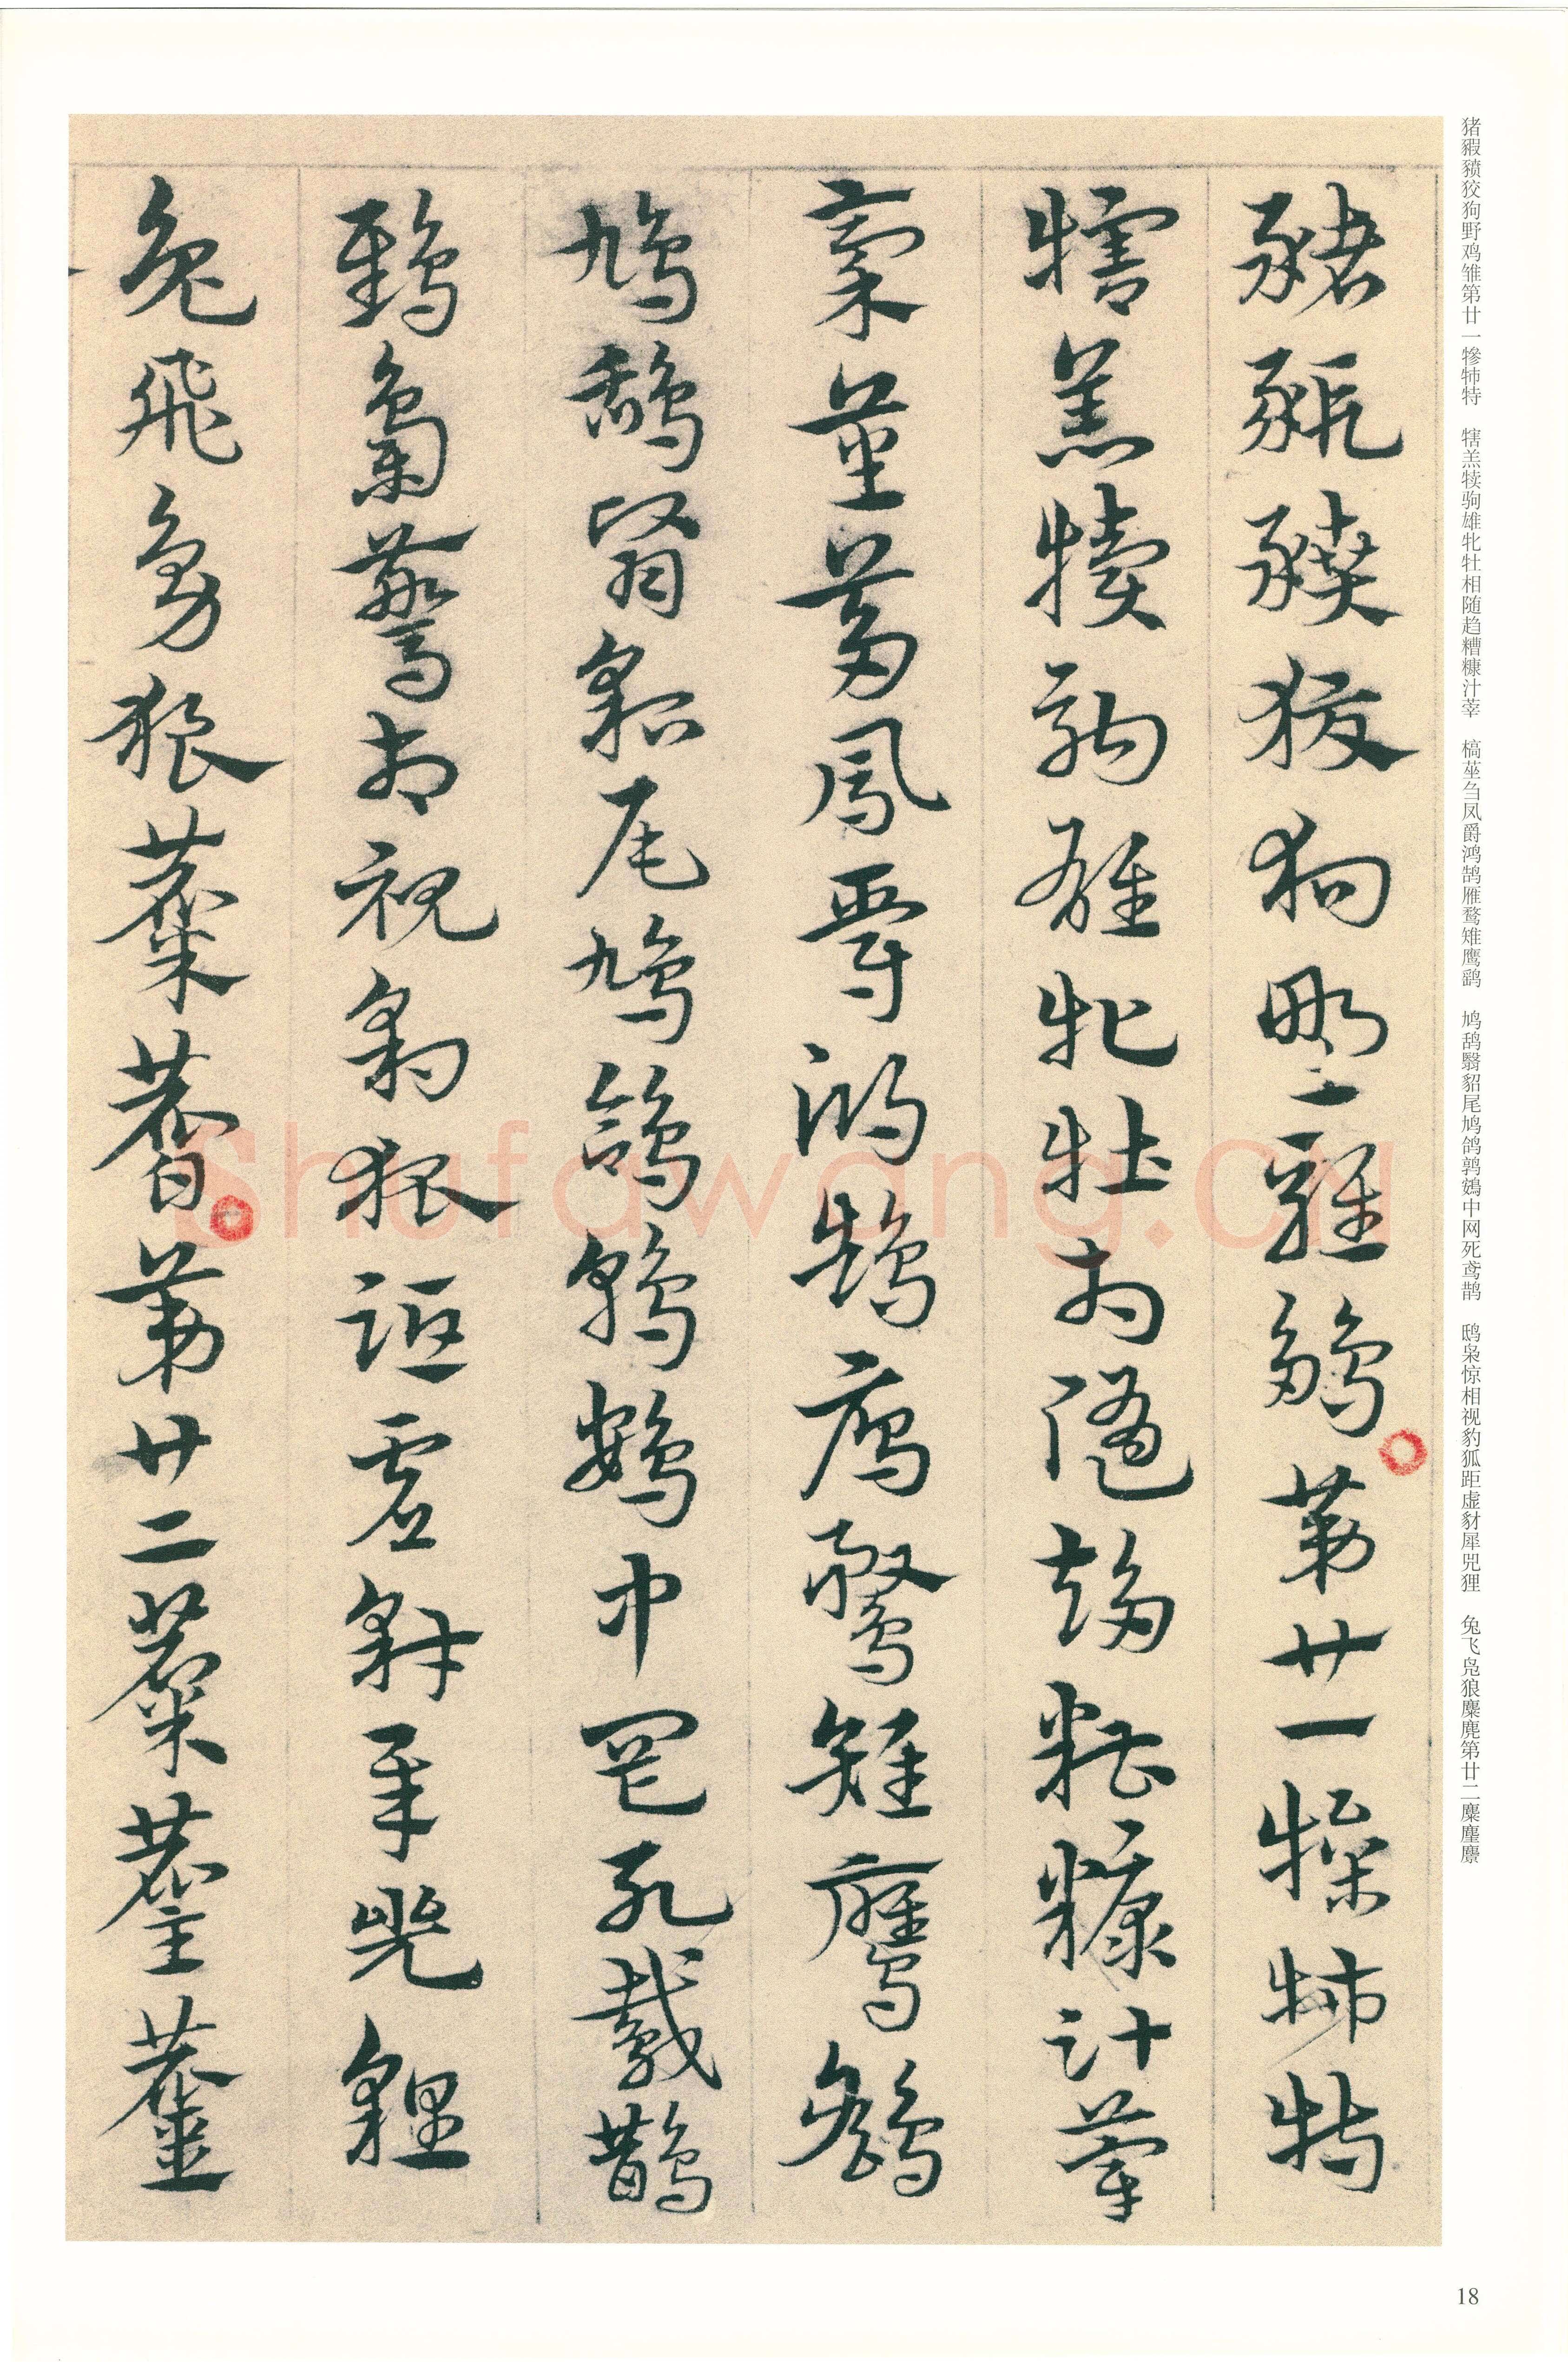 猪豭豮狡狗野鸡雏第廿一犙㸬特　犗羔犊驹雄牝牡相随趋糟糠汁莘　槁莝刍凤爵鸿鹄雁鹜雉鹰鹞　鸠鸹翳貂尾鸠鸽鹑鴳中网死鸢鹊　鸱枭惊相视豹狐距虚豺犀兕狸　兔飞凫狼麋麃第廿二麋麈麖
豬豭豶狡狗野雞雛苐廿一犙㸬特
犗羔犢駒雄牝牡相隨趨糟糠汁莘
稾莝芻鳳爵鴻鵠鴈鶩雉鷹鷂
鳩鴰翳貂尾鳩鴿鶉鴳中罔死鳶鵲
鴟梟驚相視豹狐距虛豺犀兕貍
兔飛鳧狼麋苐廿二麋麈
shufawang.cn
18